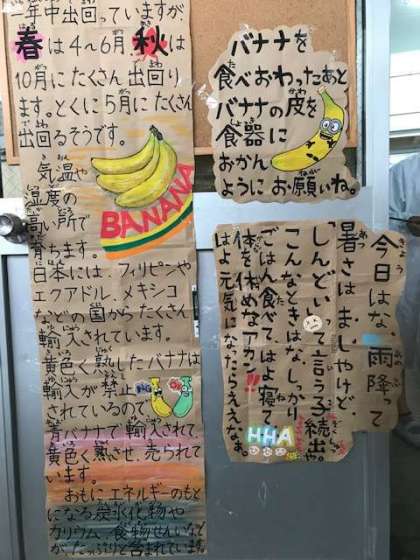 一年中出回っていますが、
春は4～6月 秋は
10月にたくさん出回り
ます。とくに5月にたくさん
出回るそうです。
気温や
湿度の
高い所で
育ちます。
BANANA
日本には、フィリピンや
エクアドル、メキシコ
などの国からたくさん
輸入されています。
黄色く熟したバナナは
輸入が禁止
されているので
青バナナで輸入されて、
黄色く熟させ、売られて
います。
おもにエネルギーのもと
になる炭水化物や
カリウム、食物せんいなど
が、たっぷりと含まれています
バナナを
食べおわったあと
バナナの皮を
食器に
おかん
ように お願いね。
今日はな、雨降って
暑さはましやけど、
しんどいって言う子続出や。
こんなときはな、しっかり
ごはん食べて、はよ寝て
体を休めなアカン!!
はよ元気になたらええな。
HHA